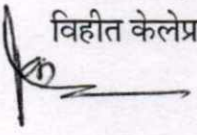 विहीत केलेप्र